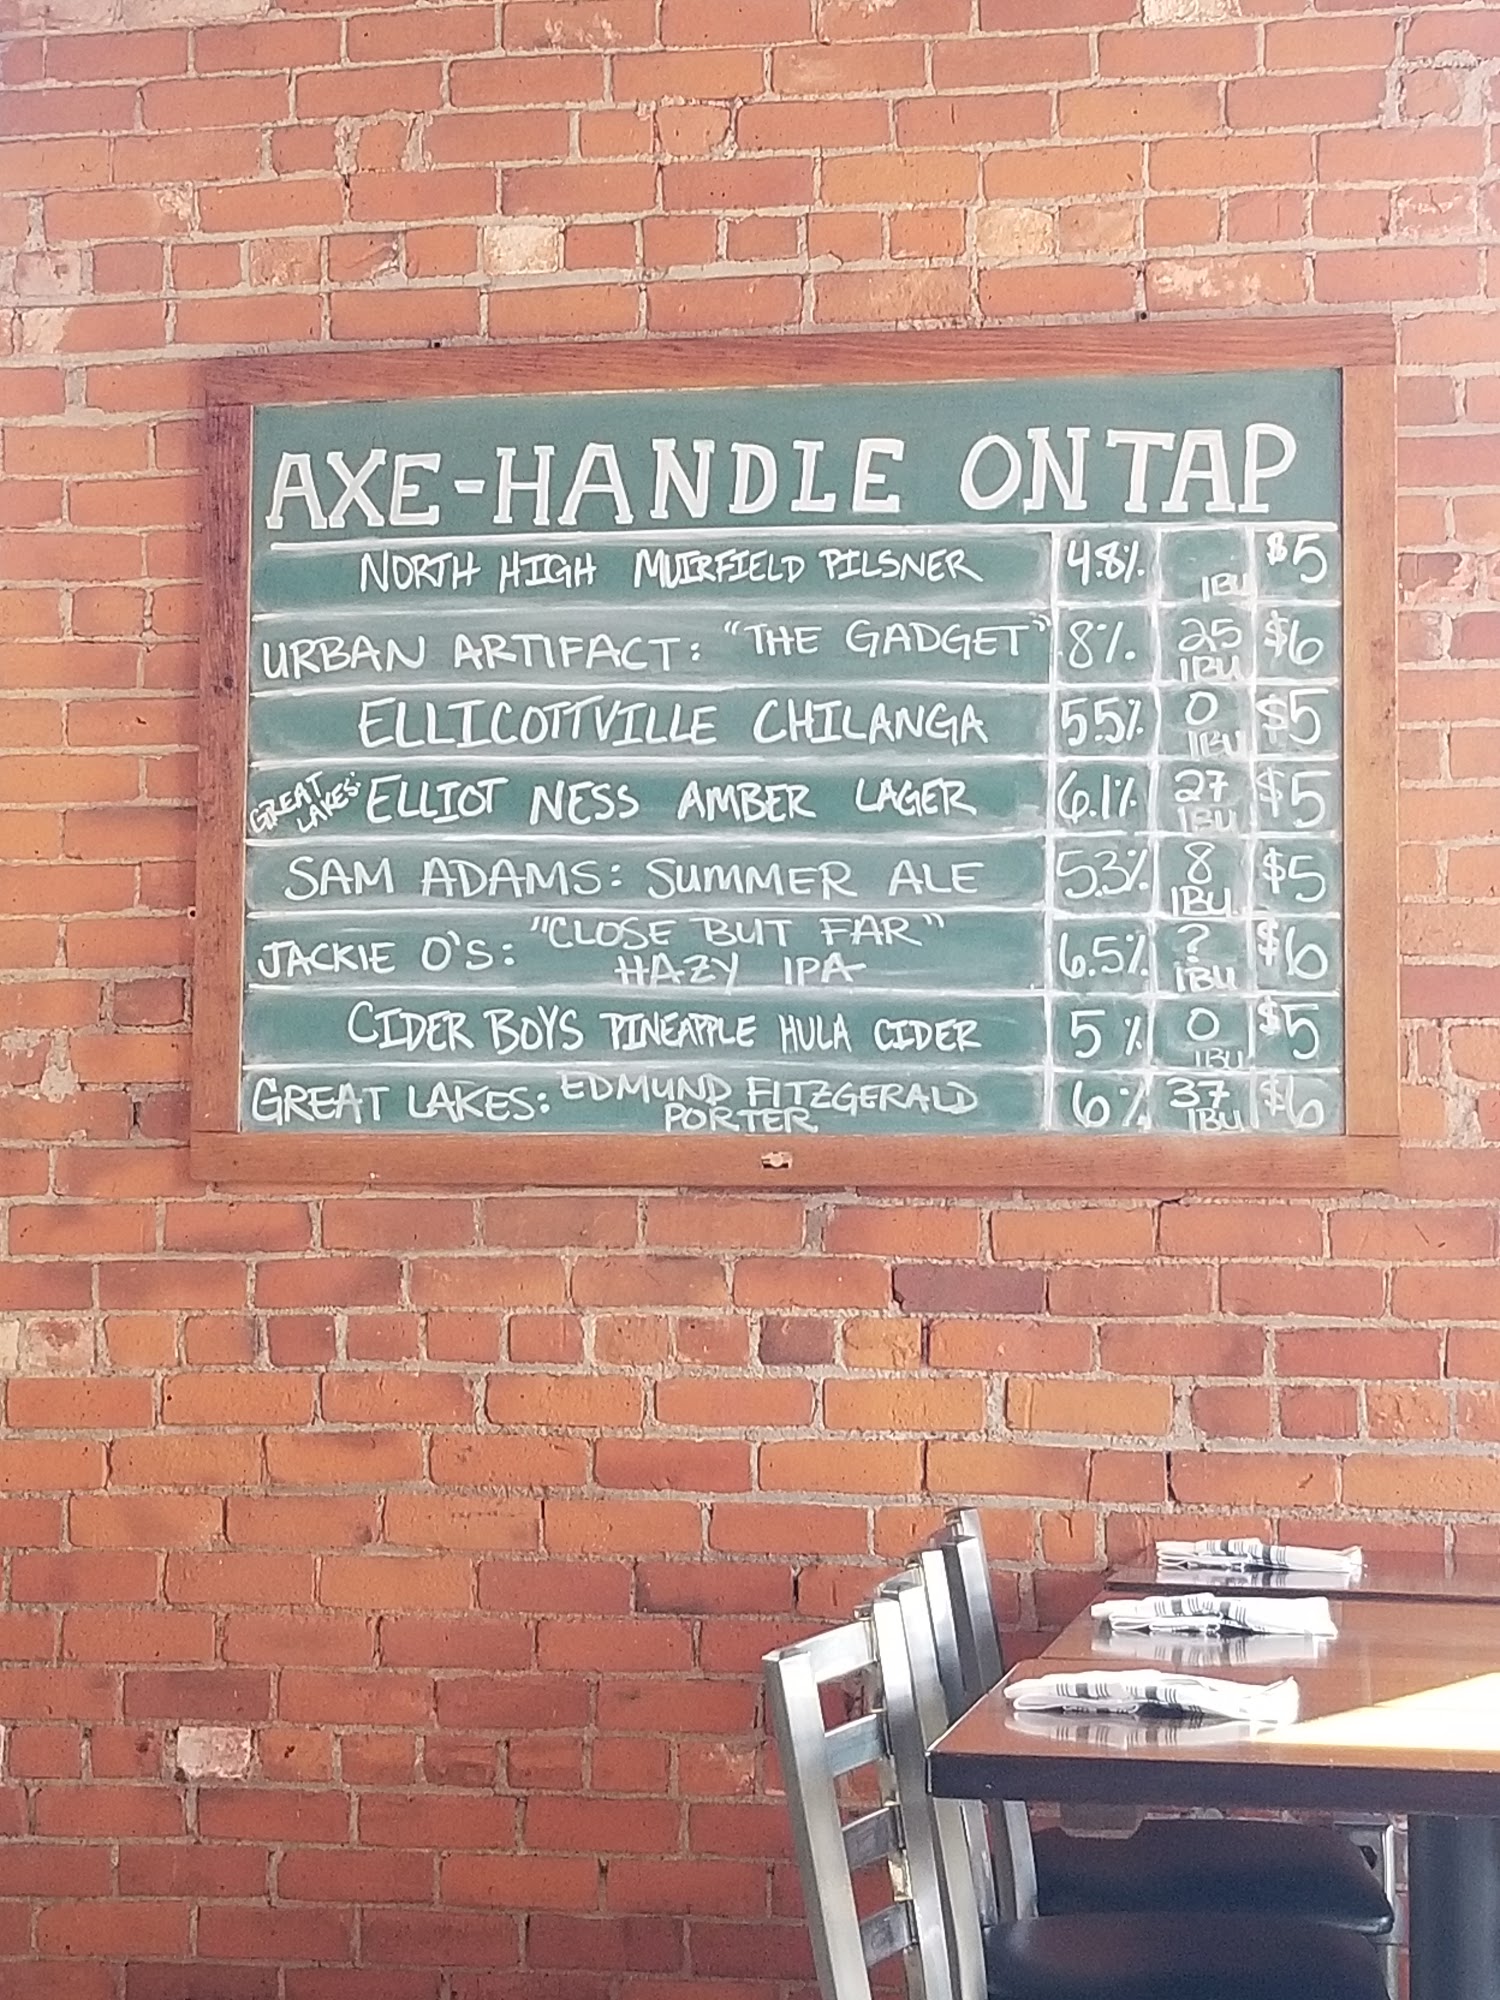 AXE-HANDLE ON TAP
NORTH HIGH MUIRFIELD PILSNER 4.8% IBU $5
URBAN ARTIFACT: "THE GADGET" 8% 25 IBU $6
ELLICOTTVILLE CHILANGA 5.5% 0 IBU $5
GREAT LAKES: ELLIOT NESS AMBER LAGER 6.1% 27 IBU $5
SAM ADAMS: SUMMER ALE 5.3% 8 IBU $5
JACKIE O'S: "CLOSE BUT FAR" HAZY IPA 6.5% ? IBU $6
CIDER BOYS PINEAPPLE HULA CIDER 5% 0 IBU $5
GREAT LAKES: EDMUND FITZGERALD PORTER 6% 37 IBU $6